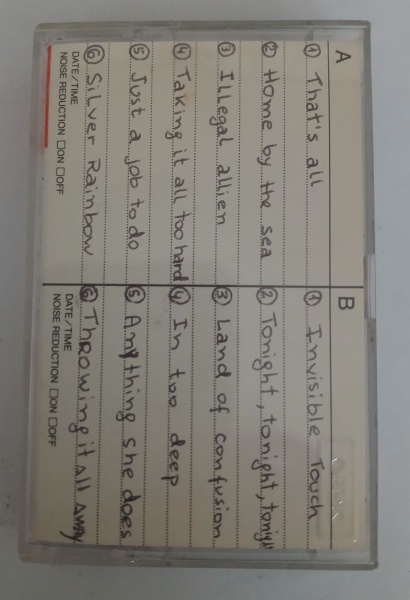 A
① That's all
② Home by the sea
③ Illegal allien
④ Taking it all too hard
⑤ Just a job to do
⑥ Silver Rainbow
DATE/TIME
NOISE REDUCTION □ON □OFF
B
① Invisible Touch
② Tonight, tonight, tonigh
③ Land of confusion
④ In too deep
⑤ Anything she does
⑥ Throwing it all away
DATE/TIME
NOISE REDUCTION □ON □OFF